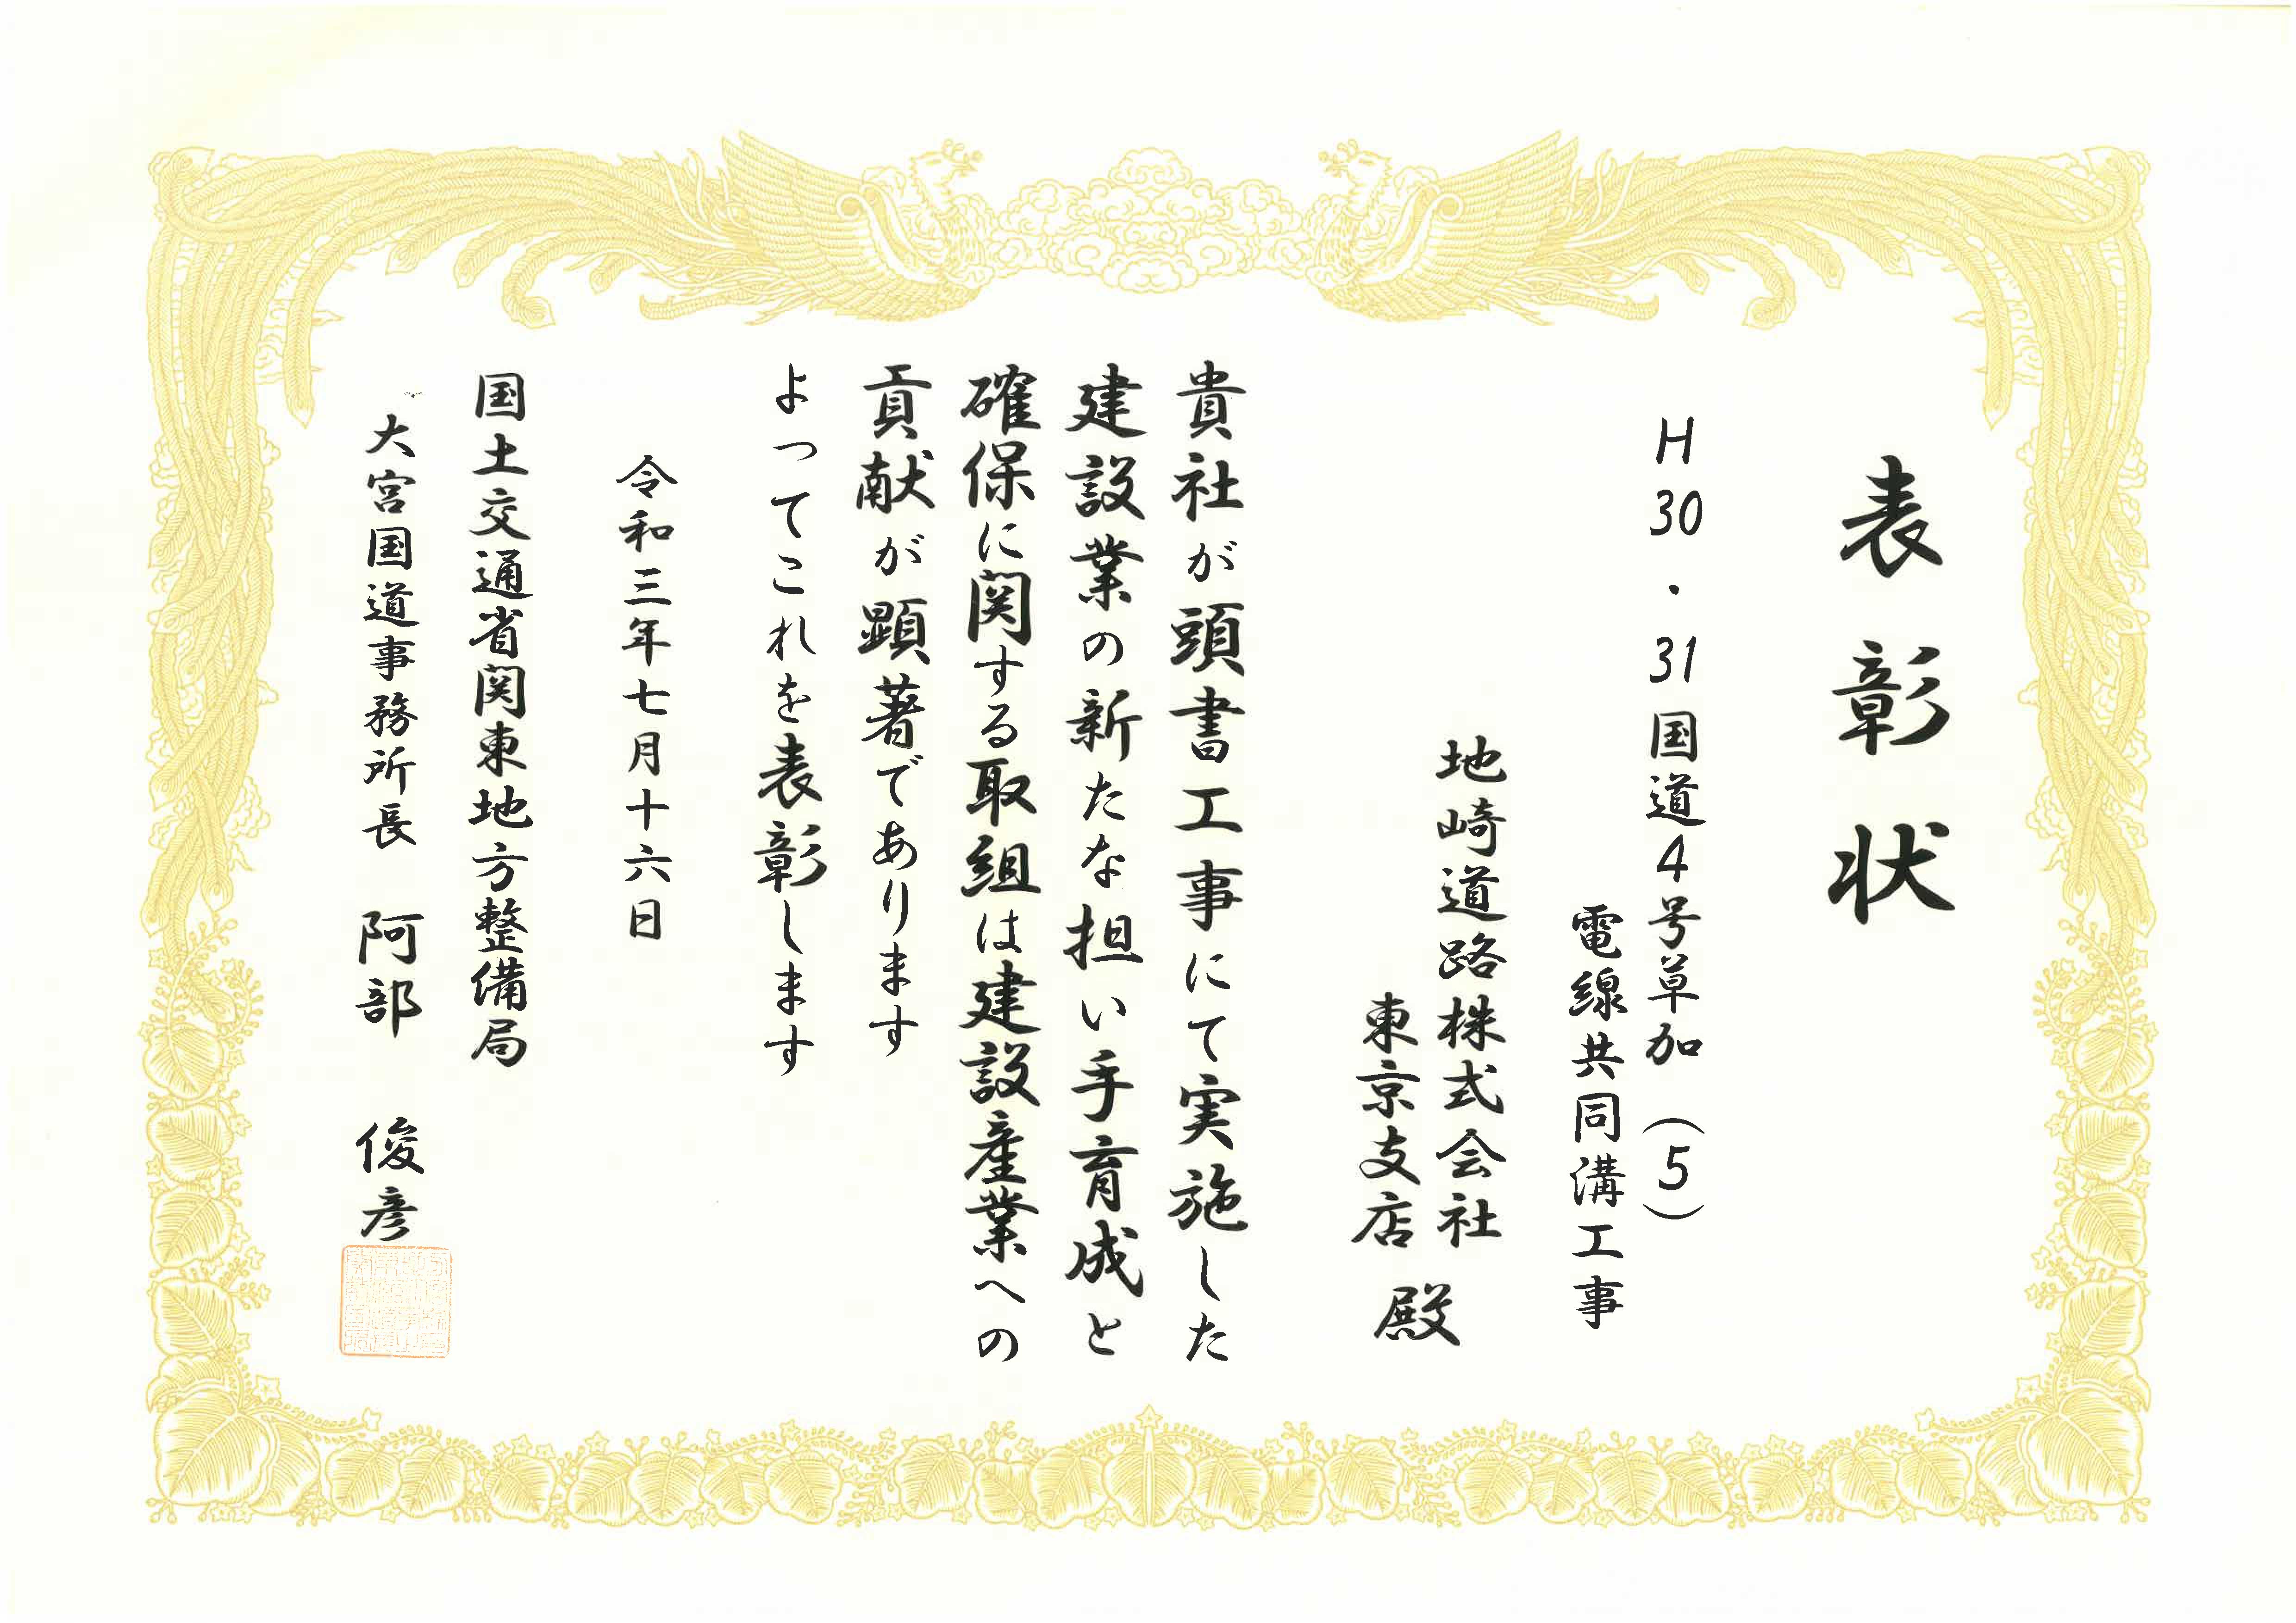 表彰状
H30・31国道4号草加(5)
電線共同溝工事
地崎道路株式会社
東京支店
殿
貴社が頭書工事にて実施した
建設業の新たな担い手育成と
確保に関する取組は建設産業への
貢献が顕著であります
よってこれを表彰します
令和三年七月十六日
国土交通省関東地方整備局
大宮国道事務所長 阿部 俊彦